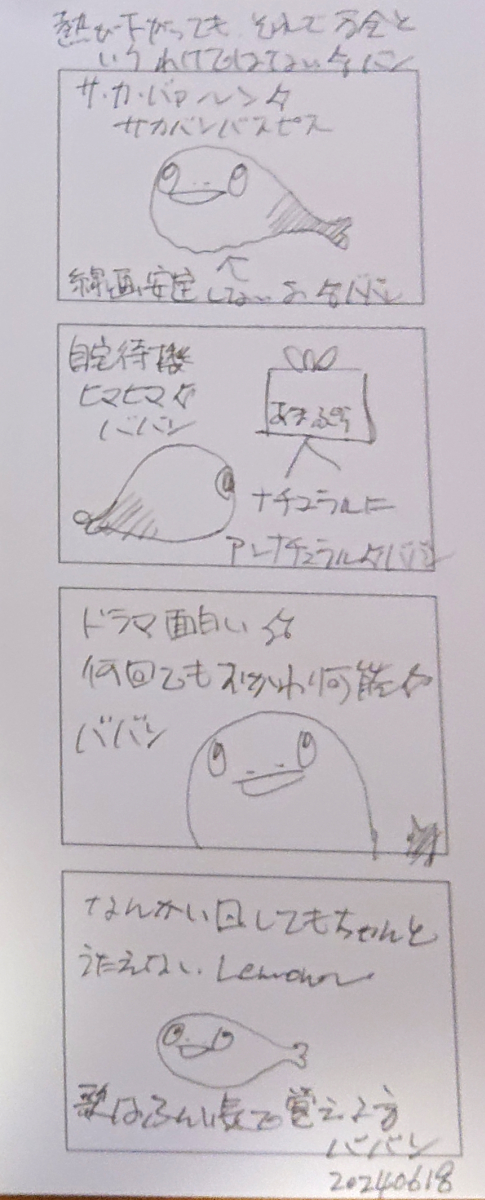 熱が下がっても それで万全と
いうわけではない☆ババン
サ・カ・バァルン☆
サカバンバスピス
線画安定してないよ☆ババン
自宅待機
ヒマヒマ☆
ババン
ナチュラルに
アンナチュラル☆ババン
ドラマ面白い☆
何回でもおかわり可能☆
ババン
なんかい目してもちゃんと
うたえない Lemon
歌はふんい気で覚える
ババン
20240618